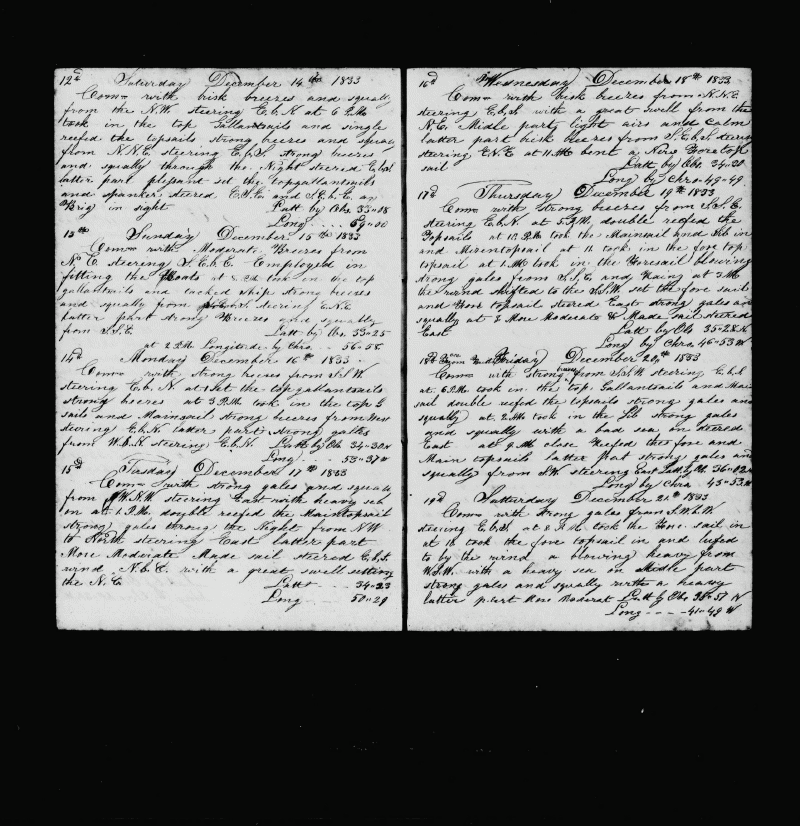 12d Saturday December 14th 1833
Comm with brisk breezes and squally
from the N.W. steering E.b.N at 6 P.M.
took in the top Gallantsails and single
reefed the topsails strong breezes and squaly
from N.N.E. steering E.b.S. strong breezes
and squally through the Night steered E.b.S
latter part pleasant set the topgallantsails
and spanker steered E.S.E. and S.E.b.E. an
Brig in sight Latt by Obs 35"18
Long .... 59"00
13th Sunday December 15th 1833
Comm with Moderate Breezes from
N.E. steering S.E.b.E Employed in
fitting the Boats at took in the top
gallantsails and tacked ship strong breezes
and squally from steering E.N.E
Latter part strong Breezes and squally
from S.S.E. Latt by Obs. 33"25
at 2 P.M. Longitude by Chro. - 56"58
14th Monday December 16th 1833
Comm with strong breezes from S.S.W
steering E.b.N at set the topgallantsails
strong breezes at 3 P.M. took in the top G
sails and Mainsail strong breezes from West
steering E.b.N. latter part strong gales
from W.b.N steering E.b.N. Latt by Ob 34"30N
Long - 53"37W
15d Tusday December 17th 1833
Comm with strong gales and squaly
from W.N.W steering East with heavy sea
on at 1 P.M. double reefed the Maintopsail
strong gales throug the Night from NW
to North steering East latter part
More Moderate Made sail steered E.b.S.
wind N.b.E. with a great swell setting
the N.E Latt - - - 34"23
Long 50"29
16d Wednesday December 18th 1833
Comm with brisk breezes from N.N.E
steering E.b.S with a great swell from the
N.E. Midle part light airs and Calm
latter part brisk breezes from S.E.b.S steering
steering E.N.E at bent a New Foretop
sail Latt by Obs 34"20
Long by Chro. 49"49.
17d Thursday December 19th 1833
Comm with strong breezes from S.S.E.
steering E.b.N. at 5 P.M. double reefed the
Topsails at 10 P.M took the Mainsail and Jib in
and Mizentopsail at 11 took in the fore top
topsail at 1 AM took in the Foresail blowing
strong gales from S.S.E. and Rainy at 5 AM
the wind shifted to the S.S.W. set the fore sail
and Fore topsail steared East strong gales and
squally at 8 More Moderate & Made sail steered
East Latt by Ob 35"28N
Long by Chro. 46"53W
18d Friday December 20th 1833
Comm with strong from S.S.W steering E.b.S
at 6 P.M. took in the top Gallantsails and Main
sail double reefed the topsails strong gales and
squally at 2 AM took in the Jib strong gales
and squally with a bad sea on steered
East at 9 AM close Reefed the fore and
Main topsails latter part strong gales and
squally from S.W steering East Latt by Ob. 36"02N
Long by Chro 45"53W
19d Satturday December 21th 1833
Comm with strong gales from S.W.b.W.
steering E.b.S at 8 P.M. took the Fore sail in
at 10 took the fore topsail in and lufed
to by the wind, a blowing heavy from
W.S.W. with a heavy sea on Midle part
strong gales and squally with a heavy
latter part More Moderat Latt by Obs 36"57 N
Long - - - - 41"49 W